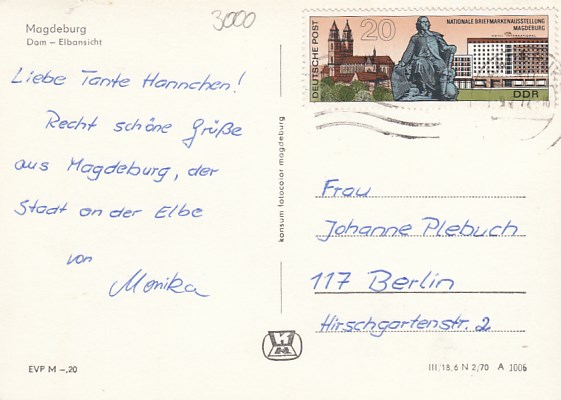 3000
Magdeburg
Dom – Elbansicht
Liebe Tante Hannchen!
Recht schöne Grüße
aus Magdeburg, der
Stadt an der Elbe
von
Monika
EVP M –,20
konsum fotocolor magdeburg
DEUTSCHE POST
20
NATIONALE BRIEFMARKENAUSSTELLUNG
MAGDEBURG
DDR
Frau
Johanne Plebuch
117 Berlin
Hirschgartenstr. 2
III/18,6 N 2/70 A 1006